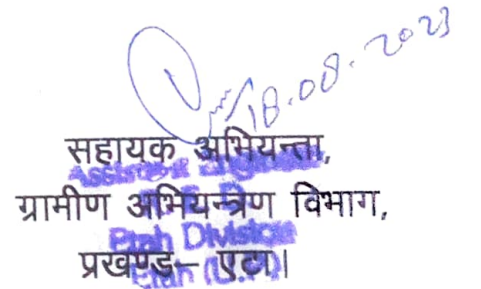 18.08.2023
सहायक अभियन्ता,
Assistant Engineer
ग्रामीण अभियन्त्रण विभाग,
Etah Division
प्रखण्ड– एटा।
Etah (U.P.)